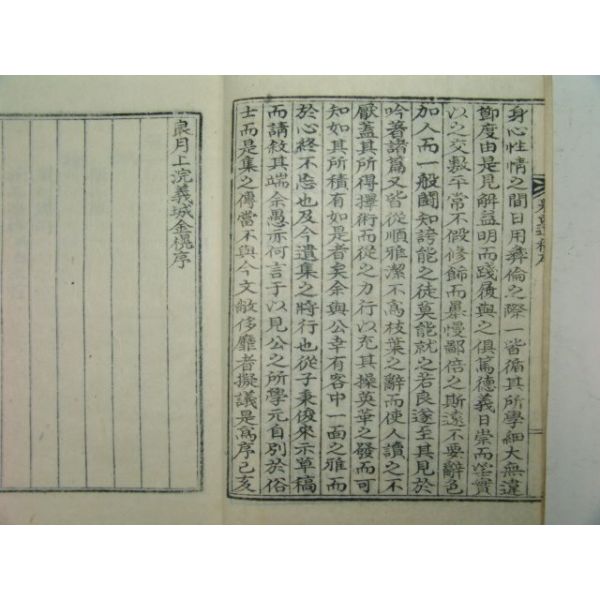 身心性情之間日用彛倫之際一皆循其所學細大無違
鄭度由是見解益明而踐履與之俱篤德義日崇而望實
以之交敷平常不假修飾而暴慢鄙倍之斯遠不要辭色
加人而一般鬪知誇能之徒莫能就之若良遂至其見於
吟著諸篇又皆從順雅潔不為枝葉之辭而使人讀之不
厭盖其所得擇術而從之力行以充其操英華之發而可
知如其所積有如是者矣余與公幸有客中一面之雅而
於心終不忘也及今遺集之將行也從子秉俊來示草稿
而請敍其端余愚亦何言于以見公之所學元自別於俗
士而是集之傳當不與今文敝侈靡者擬議是為序己亥
良月上浣義城金榥序